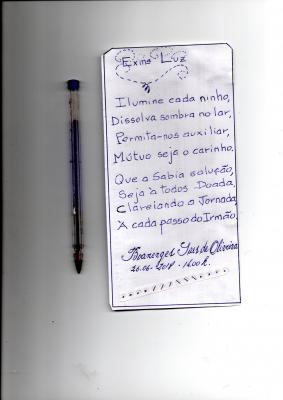 Exina Luz
Ilumine cada ninho,
Dissolva sombra no lar,
Permita-nos auxiliar,
Mútuo seja o carinho.
Que a Sabia solução,
Seja à todos Doada,
Clareiando a Jornada,
À cada passo do Irmão.
Boanerges Luis de Oliveira